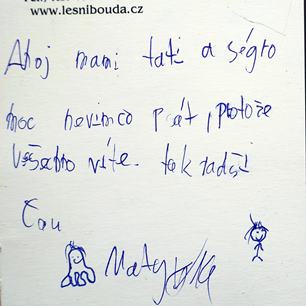 www.lesnibouda.cz
Ahoj mami tati a ségro
moc nevimco psát, protože
všechno víte. tak radši
Čau